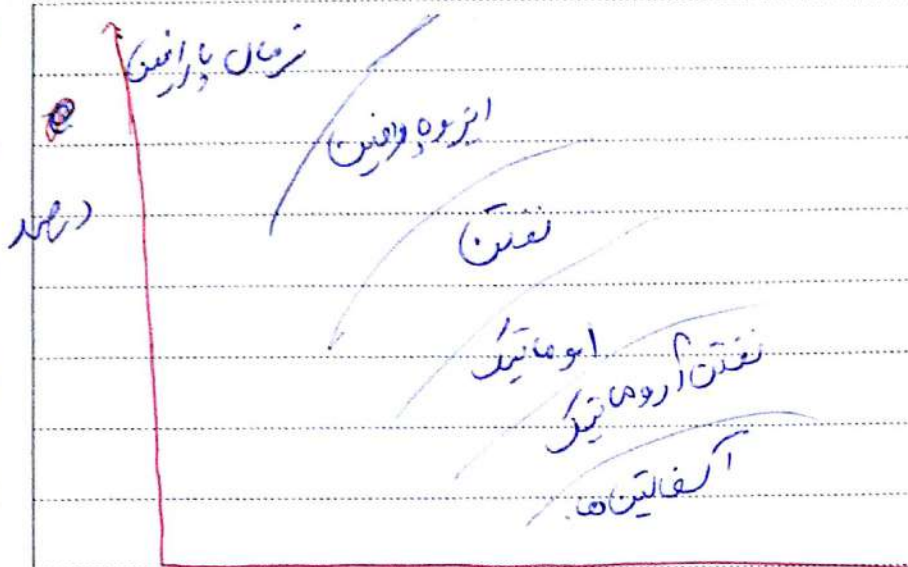 نرمال پارافین
ایزوپارافین
درصد
نفتن
اروماتیک
نفتن آروماتیک
آسفالتین ها